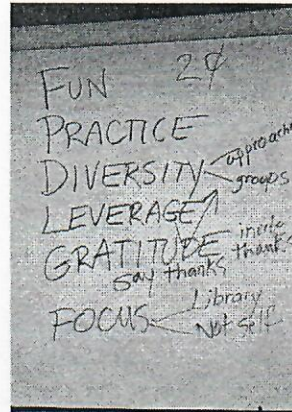 2¢
FUN
PRACTICE
DIVERSITY
approache
groups
LEVERAGE
GRATITUDE
thanks
say thanks
FOCUS
Library
Not self